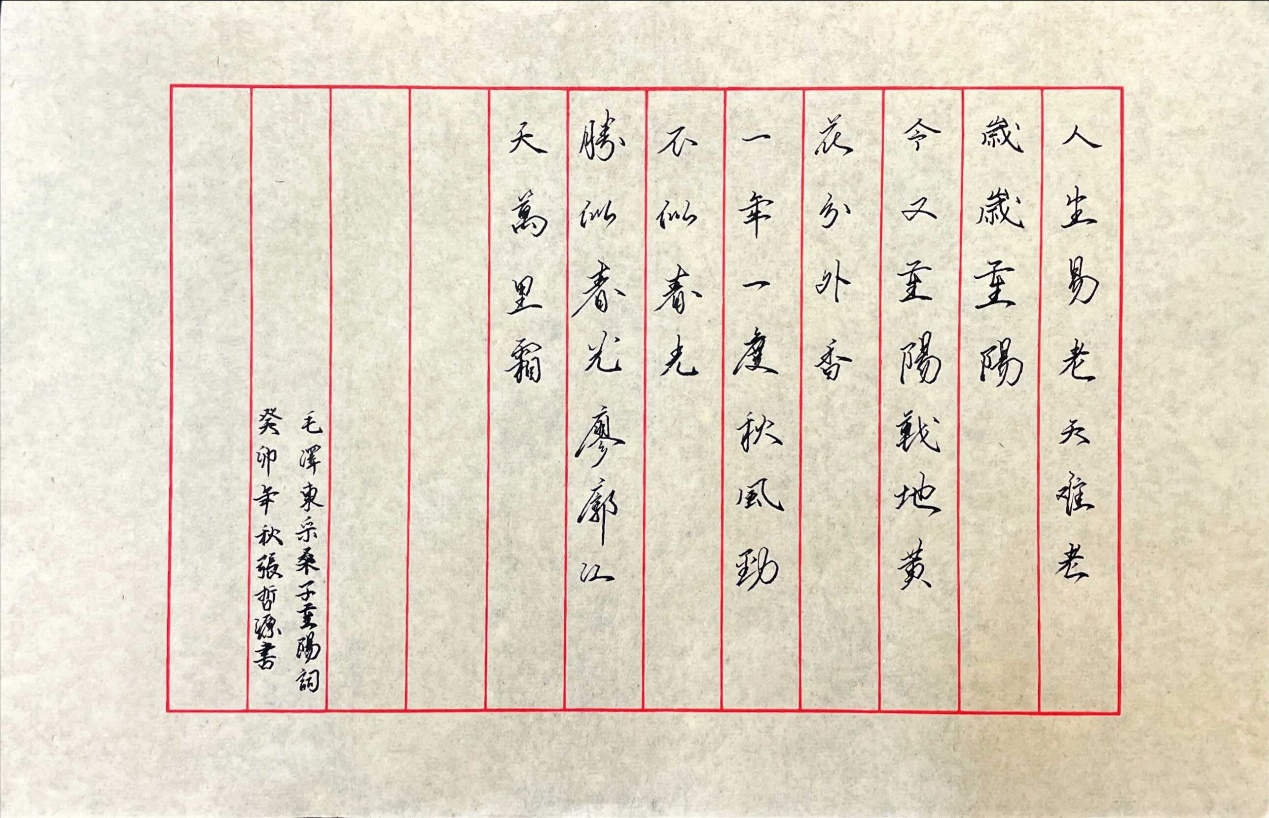 人生易老天難老
歲歲重陽
今又重陽戰地黃
花分外香
一年一度秋風勁
不似春光
勝似春光廖廓江
天萬里霜
毛澤東采桑子重陽詞
癸卯年秋張哲源書